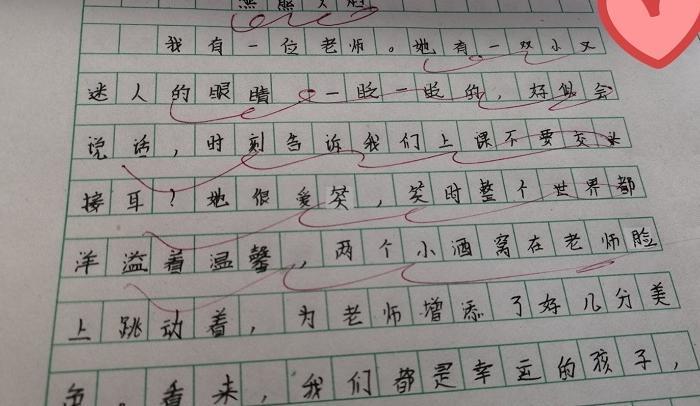 我有一位老师。她有一双小又
迷人的眼睛一眨一眨的，好似会
说话，时刻告诉我们上课不要交头
接耳？她很爱笑，笑时整个世界都
洋溢着温馨，两个小酒窝在老师脸
上跳动着，为老师增添了好几分美
色。看来，我们都是幸运的孩子，